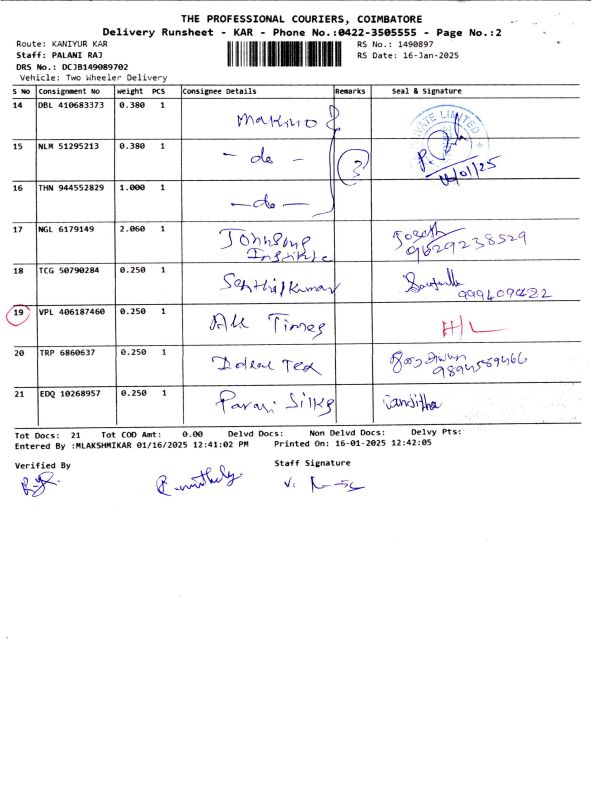 THE PROFESSIONAL COURIERS, COIMBATORE
Delivery Runsheet - KAR - Phone No.:0422-3505555 - Page No.:2
Route: KANIYUR KAR RS No.: 1490897
Staff: PALANI RAJ RS Date: 16-Jan-2025
DRS No.: DCJB149089702
Vehicle: Two Wheeler Delivery
S No Consignment No Weight PCS Consignee Details Remarks Seal & Signature
14 DBL 410683373 0.380 1 Makino
15 NLM 51295213 0.380 1 - do - 3 16/01/25
16 THN 944552829 1.000 1 - do -
17 NGL 6179149 2.060 1 Johnsons
18 TCG 50790284 0.250 1 Senthilkumar
19 VPL 406187460 0.250 1 All Times H/L
20 TRP 6860637 0.250 1 Ideal Tex 9894589466
21 EDQ 10268957 0.250 1 Parani Silks
Tot Docs: 21 Tot COD Amt: 0.00 Delvd Docs: Non Delvd Docs: Delvy Pts:
Entered By :MLAKSHMIKAR 01/16/2025 12:41:02 PM Printed On: 16-01-2025 12:42:05
Verified By Staff Signature